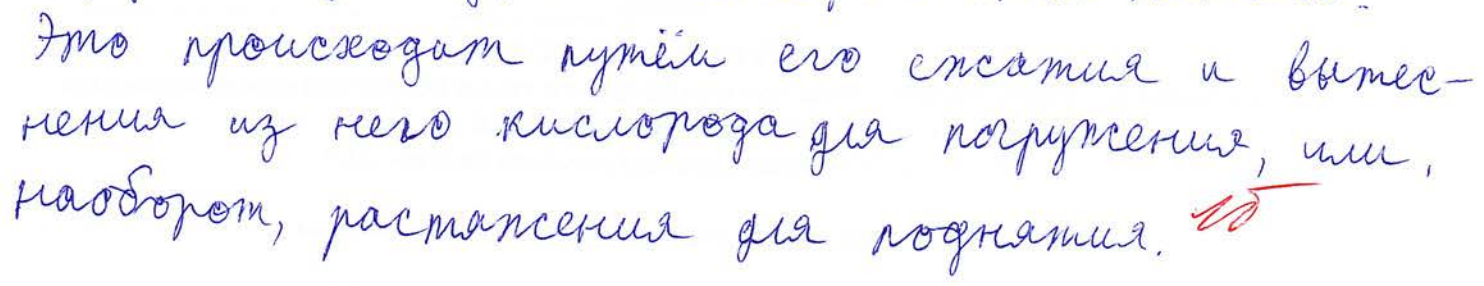 Это происходит путём его сжатия и вытес-
нения из него кислорода для погружения, или,
наоборот, растяжения для поднятия.